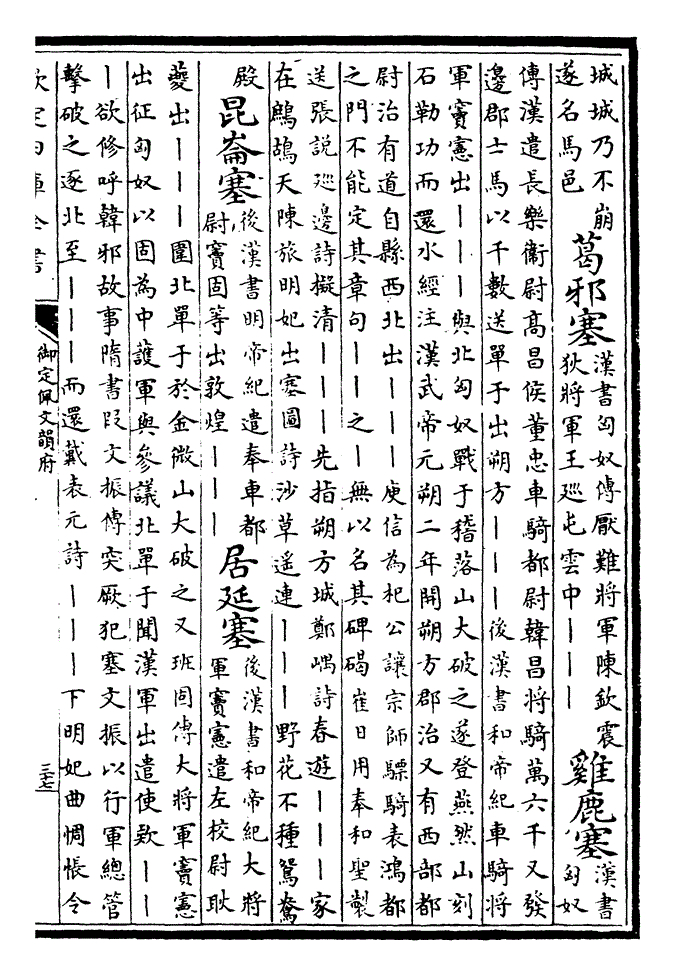 城城乃不崩
遂名馬邑
葛邪塞
漢書匈奴傳厭難將軍陳欽震
狄將軍王廵屯雲中｜｜｜
雞鹿塞
漢書
匈奴
傳漢遣長樂衛尉髙昌侯董忠車騎都尉韓昌將騎萬六千又發
邊郡士馬以千數送單于出朔方｜｜｜後漢書和帝紀車騎將
軍竇憲出｜｜｜與北匈奴戰于稽落山大破之遂登燕然山刻
石勒功而還水經注漢武帝元朔二年開朔方郡治又有西部都
尉治有道自縣西北出｜｜｜庾信為杞公讓宗師驃騎表鴻都
之門不能定其章句｜｜之｜無以名其碑碣崔日用奉和聖製
送張説廵邊詩擬清｜｜｜先指朔方城鄭嵎詩春遊｜｜｜家
在鷓鴣天陳旅明妃出塞圖詩沙草遥連｜｜｜野花不種鴛鴦
殿
昆崙塞
後漢書明帝紀遣奉車都
尉竇固等出敦煌｜｜｜
居延塞
後漢書和帝紀大將
軍竇憲遣左校尉耿
夔出｜｜｜圍北單于於金微山大破之又班固傳大將軍竇憲
出征匈奴以固為中護軍與參議北單于聞漢軍出遣使欵｜｜
｜欲修呼韓邪故事隋書段文振傳突厥犯塞文振以行軍總管
擊破之逐北至｜｜｜而還戴表元詩｜｜｜下明妃曲惆悵令
欽定四庫全書
御定佩文韻府